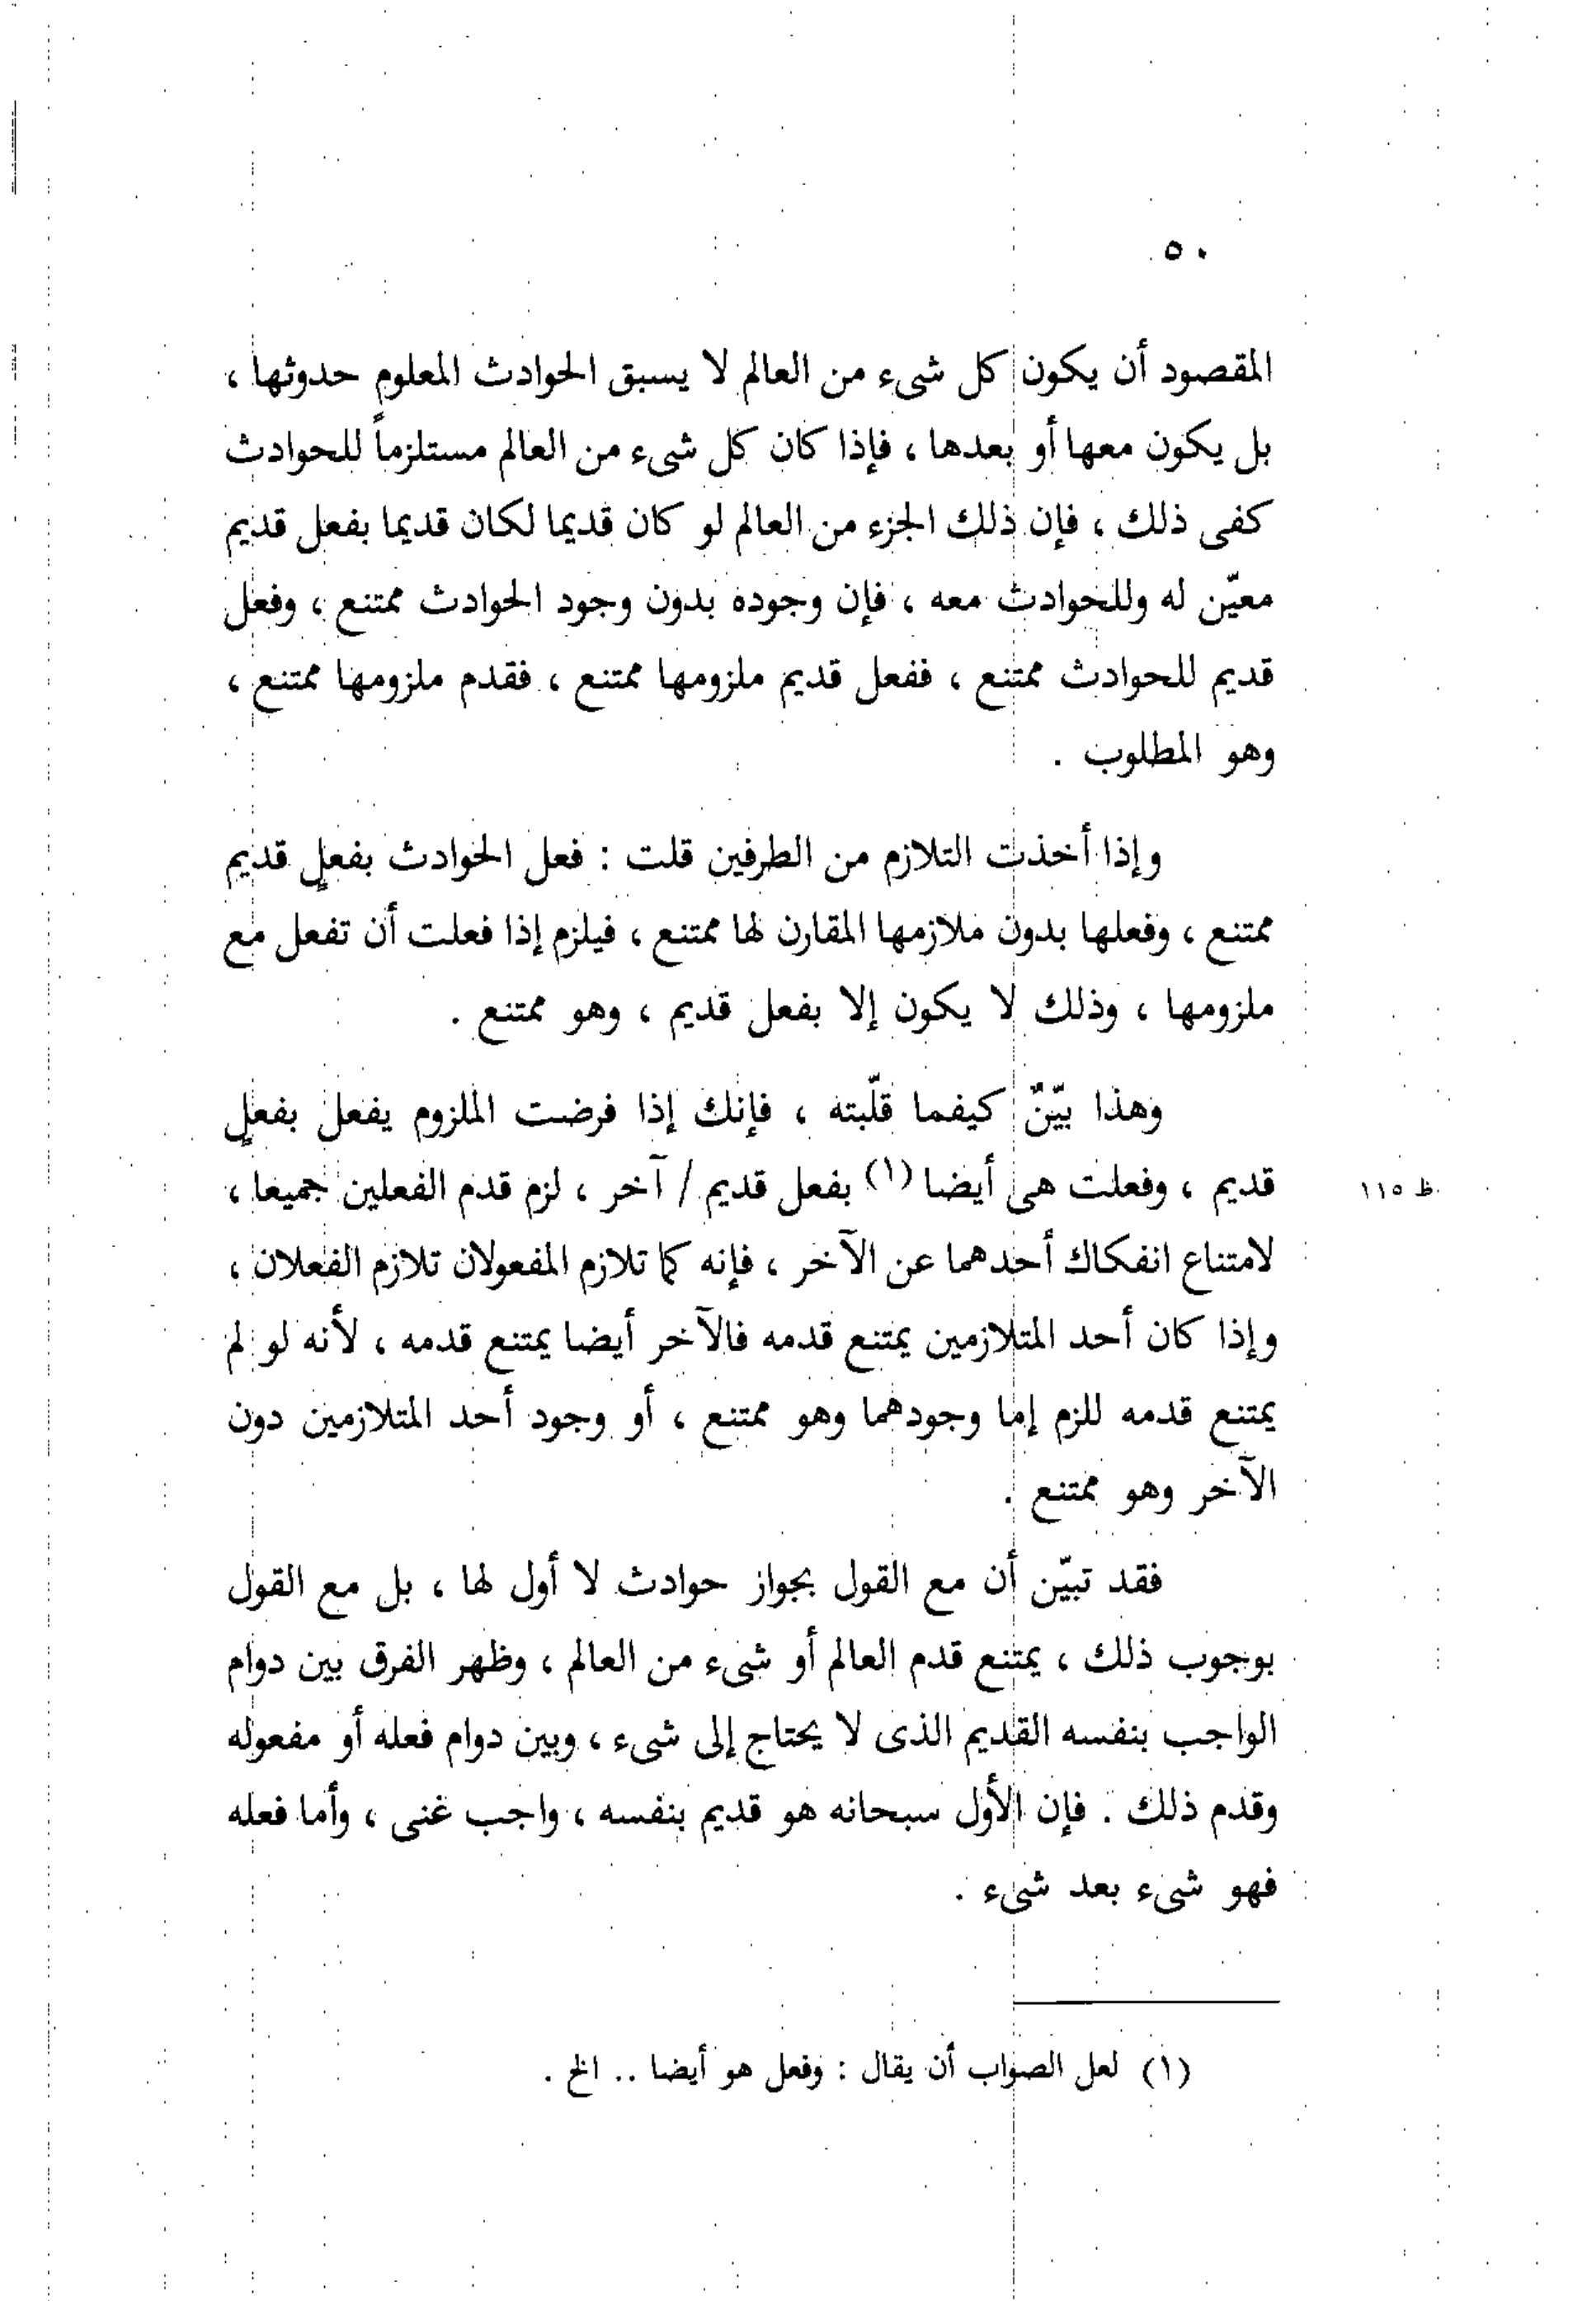 ٥٠
المقصود أن يكون كل شىء من العالم لا يسبق الحوادث المعلوم حدوثها ،
بل يكون معها أو بعدها ، فإذا كان كل شىء من العالم مستلزماً للحوادث
كفى ذلك ، فإن ذلك الجزء من العالم لو كان قديما لكان قديما بفعل قديم
معيّن له وللحوادث معه ، فإن وجوده بدون وجود الحوادث ممتنع ، وفعل
قديم للحوادث ممتنع ، ففعل قديم ملزومها ممتنع ، فقدم ملزومها ممتنع ،
وهو المطلوب .
وإذا أخذت التلازم من الطرفين قلت : فعل الحوادث بفعلٍ قديم
ممتنع ، وفعلها بدون ملازمها المقارن لها ممتنع ، فيلزم إذا فعلت أن تفعل مع
ملزومها ، وذلك لا يكون إلا بفعل قديم ، وهو ممتنع .
وهذا بيّنٌ كيفما قلّبته ، فإنك إذا فرضت الملزوم يفعل بفعلٍ
قديم ، وفعلت هى أيضا (١) بفعل قديم / آخر ، لزم قدم الفعلين جميعا ،
ظ ١١٥
لامتناع انفكاك أحدهما عن الآخر ، فإنه كما تلازم المفعولان تلازم الفعلان ،
وإذا كان أحد المتلازمين يمتنع قدمه فالآخر أيضا يمتنع قدمه ، لأنه لو لم
يمتنع قدمه للزم إما وجودهما وهو ممتنع ، أو وجود أحد المتلازمين دون
الآخر وهو ممتنع .
فقد تبيّن أن مع القول بجواز حوادث لا أول لها ، بل مع القول
بوجوب ذلك ، يمتنع قدم العالم أو شىء من العالم ، وظهر الفرق بين دوام
الواجب بنفسه القديم الذى لا يحتاج إلى شىء ، وبين دوام فعله أو مفعوله
وقدم ذلك . فإن الأول سبحانه هو قديم بنفسه ، واجب غنى ، وأما فعله
فهو شىء بعد شىء .
(١) لعل الصواب أن يقال : وفعل هو أيضا .. الخ .